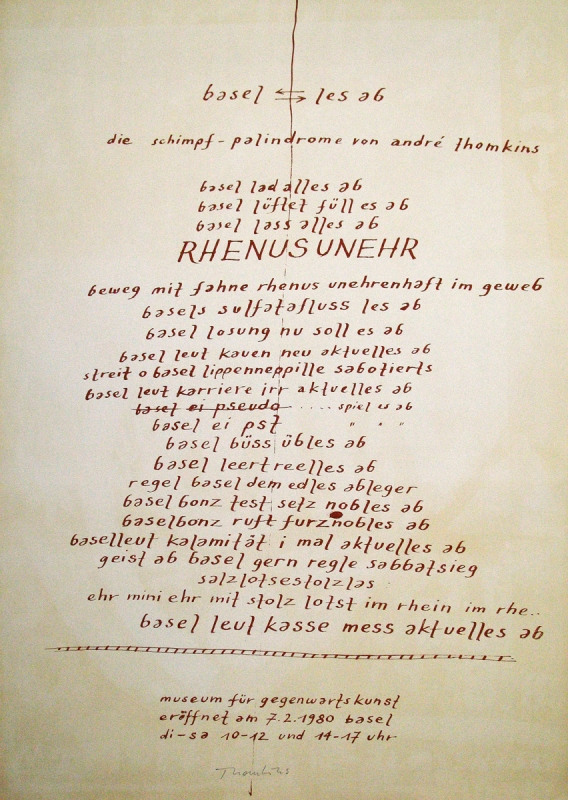 basel ⇄ les ab
die schimpf-palindrome von andré thomkins
basel lad alles ab
basel lüftet füll es ab
basel lass alles ab
RHENUS UNEHR
beweg mit fahne rhenus unehrenhaft im geweb
basels sulfatafluss les ab
basel losung nu soll es ab
basel leut kauen neu aktuelles ab
streit o basel lippenneppille sabotierts
basel leut karriere irr aktuelles ab
basel ei pseudo ..... spiel es ab
basel ei pst " " "
basel büss übles ab
basel leert reelles ab
regel basel dem edles ableger
basel bonz test setz nobles ab
baselbonz ruft furznobles ab
baselleut kalamität i mal aktuelles ab
geist ab basel gern regle sabbatsieg
salzlotsestolzlas
ehr mini ehr mit stolz lotst im rhein im rhe..
basel leut kasse mess aktuelles ab
museum für gegenwartskunst
eröffnet am 7.2.1980 basel
di-sa 10-12 und 14-17 uhr
Thomkins